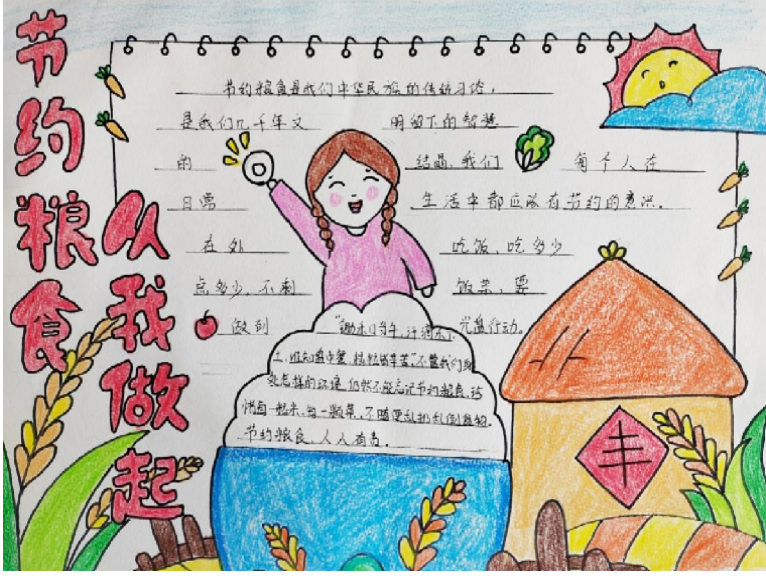 节约粮食
从我做起
节约粮食是我们中华民族的传统习俗，
是我们几千年文 明留下的智慧
的 结晶，我们 每个人在
日常 生活中都应该有节约的意识。
在外 吃饭，吃多少
点多少，不剩 饭菜，要
做到 光盘行动。
"锄禾日当午，汗滴禾下
土，谁知盘中餐，粒粒皆辛苦"不管我们身
处怎样的环境，仍然不能忘记节约粮食，珍
惜每一粒米，每一颗菜，不随便乱扔乱倒
节约粮食，人人有责。
丰